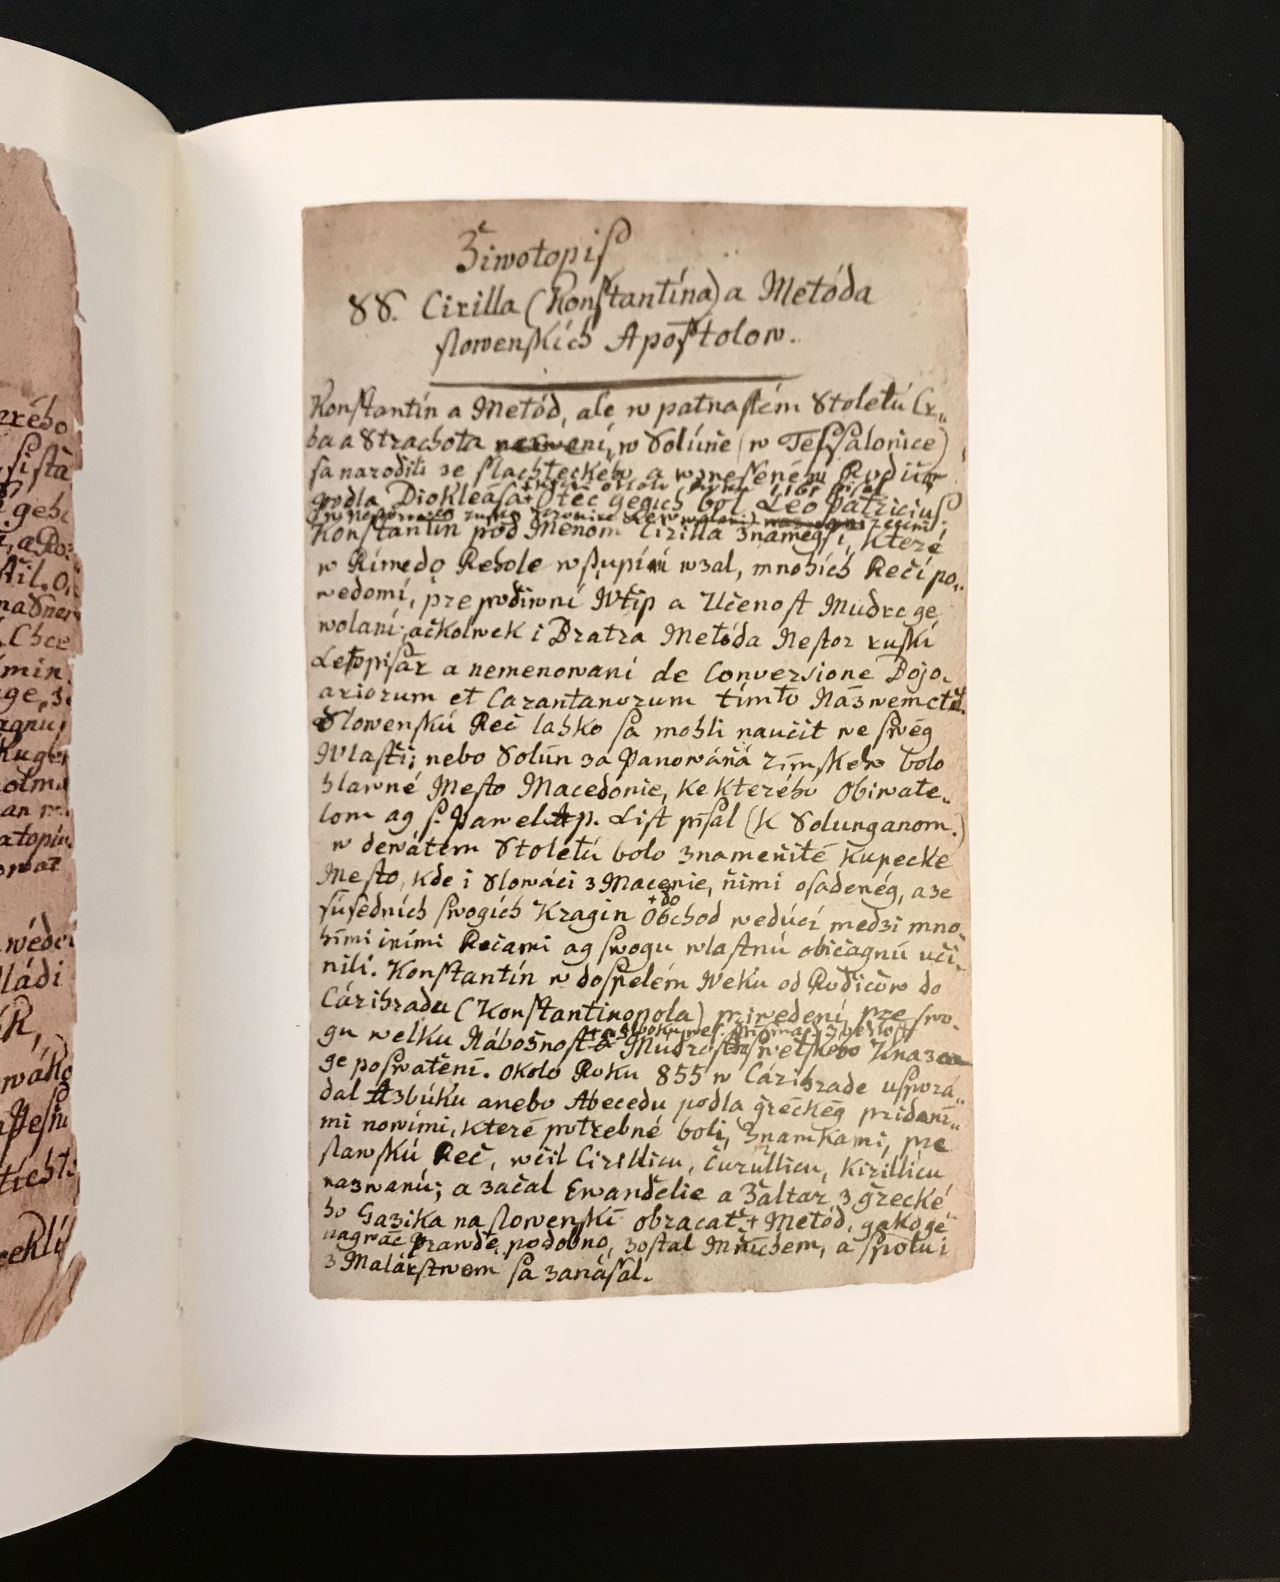 zrého
sistá
geho
a Roz
stil. O,
na Sner
Chce
imin.
age, z
agnu
Kuger
holmu
an w.
atopiu
owat
wédci
ládi
wáho
Živvotopis
SS. Cirilla (Konštantína) a Metóda
slowenskích Apoštolow.
Konštantín a Metód, ale w patnastém Století Cr„
ha a Strachota w Solúňe (w Tessalonice)
sa narodili ze šlachteckého a wznešeného Rodičw
podla Diokleása. Otec gegich bol Leo patricius
Konštantín pod Menom Cirilla známegší, které
w Rímedo Rehole wstúpiní wzal, mnohích Rečí po„
wedomí, pre podiwní Wtip a Učenost Mudrc ge
wolaní; ačkolwek i Bratra Metóda Nestor ruskí
Letopisár a nemenowaní de Conversione Bojo„
ariorum et Carantanorum tímto Názwem ctil.
Slowenskú Reč lahko sa mohli naučit we swég
Wlasti; nebo Solún za Panowáňá rímskeho bolo
hlawné Mesto Macedonie, ke kterého Obiwate„
lom ag s. Pawel Ap. List písal (k Solunganom.)
w dewátem Století bolo znameňité kupecké
Mesto, kde i Slowáci z Macenie, ňimi osadenég, a ze
súsedních swogích Kragin Obchod wedúcí medzi mno„
+ do
himi iními Rečami ag swogu wlastnú običagnú uči„
nili. Konštantín w dospelém Weku od Rodičow do
Cárihradu (Konštantinopola) priwedení, pre swo„
gu welku Nábožnost Múdrost swetského Kňaza
ge poswatení. Okolo Roku 855 w Cárihrade usporá„
dal Azbúku anebo Abecedu podla gréckég pridaní„
mi nowími, které potrebné boli, Znamkami, pre
slawskú Reč, wčil Cirillicu, Čurullicu, Kirillicu
nazwanú; a začal Ewandelie a Žaltar z grécké
ho Gazika na slowenskí obracat. + Metód, gako ge
nagwác Prawde podobno, zostal Mňichem, a spolu i
z Malárstwem sa zanásal.